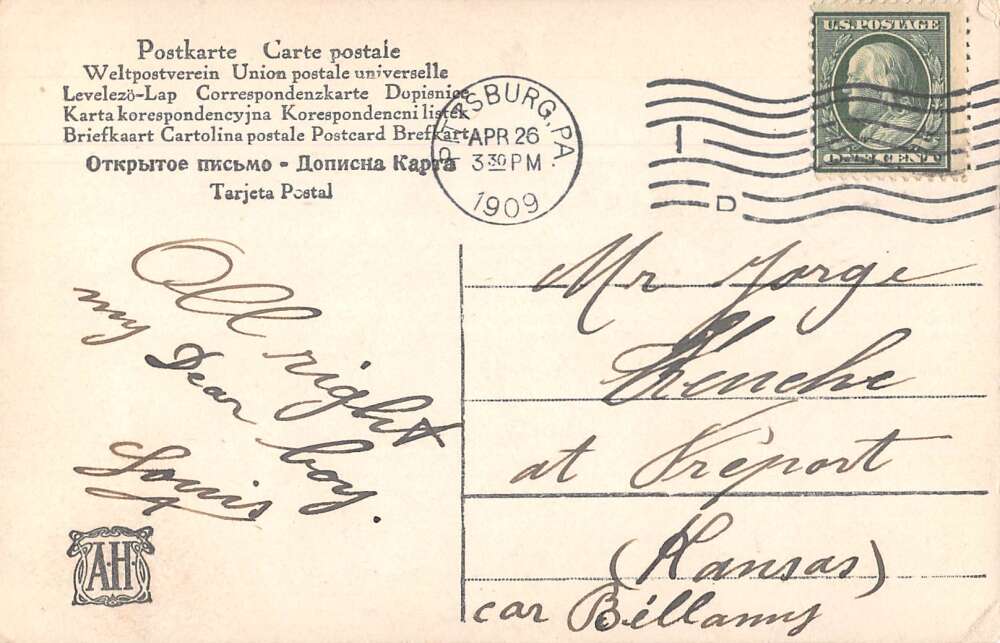 Postkarte Carte postale
Weltpostverein Union postale universelle
Levelezö-Lap Correspondenzkarte Dopisnice
Karta korespondencyjna Korespondencni listek
Briefkaart Cartolina postale Postcard Brefkart
Открытое письмо - Дописна Карта
Tarjeta Postal
PITTSBURG, PA.
APR 26
3 30 PM
1909
D
U.S. POSTAGE
ONE CENT
All right
my Dear boy.
Louis
A·H·
Mr Jorge
at Tréport
(Kansas)
car Béllamy